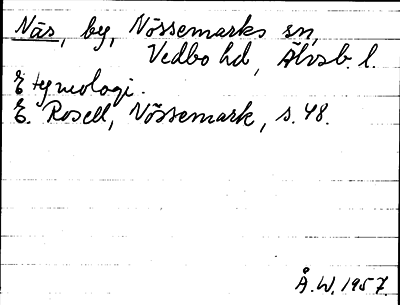 Näs, by, Nössemarks sn,
Vedbo hd, Älvsb. l.
Etymologi.
E. Rosell, Nössemark, s. 48.
Å.W. 1957.